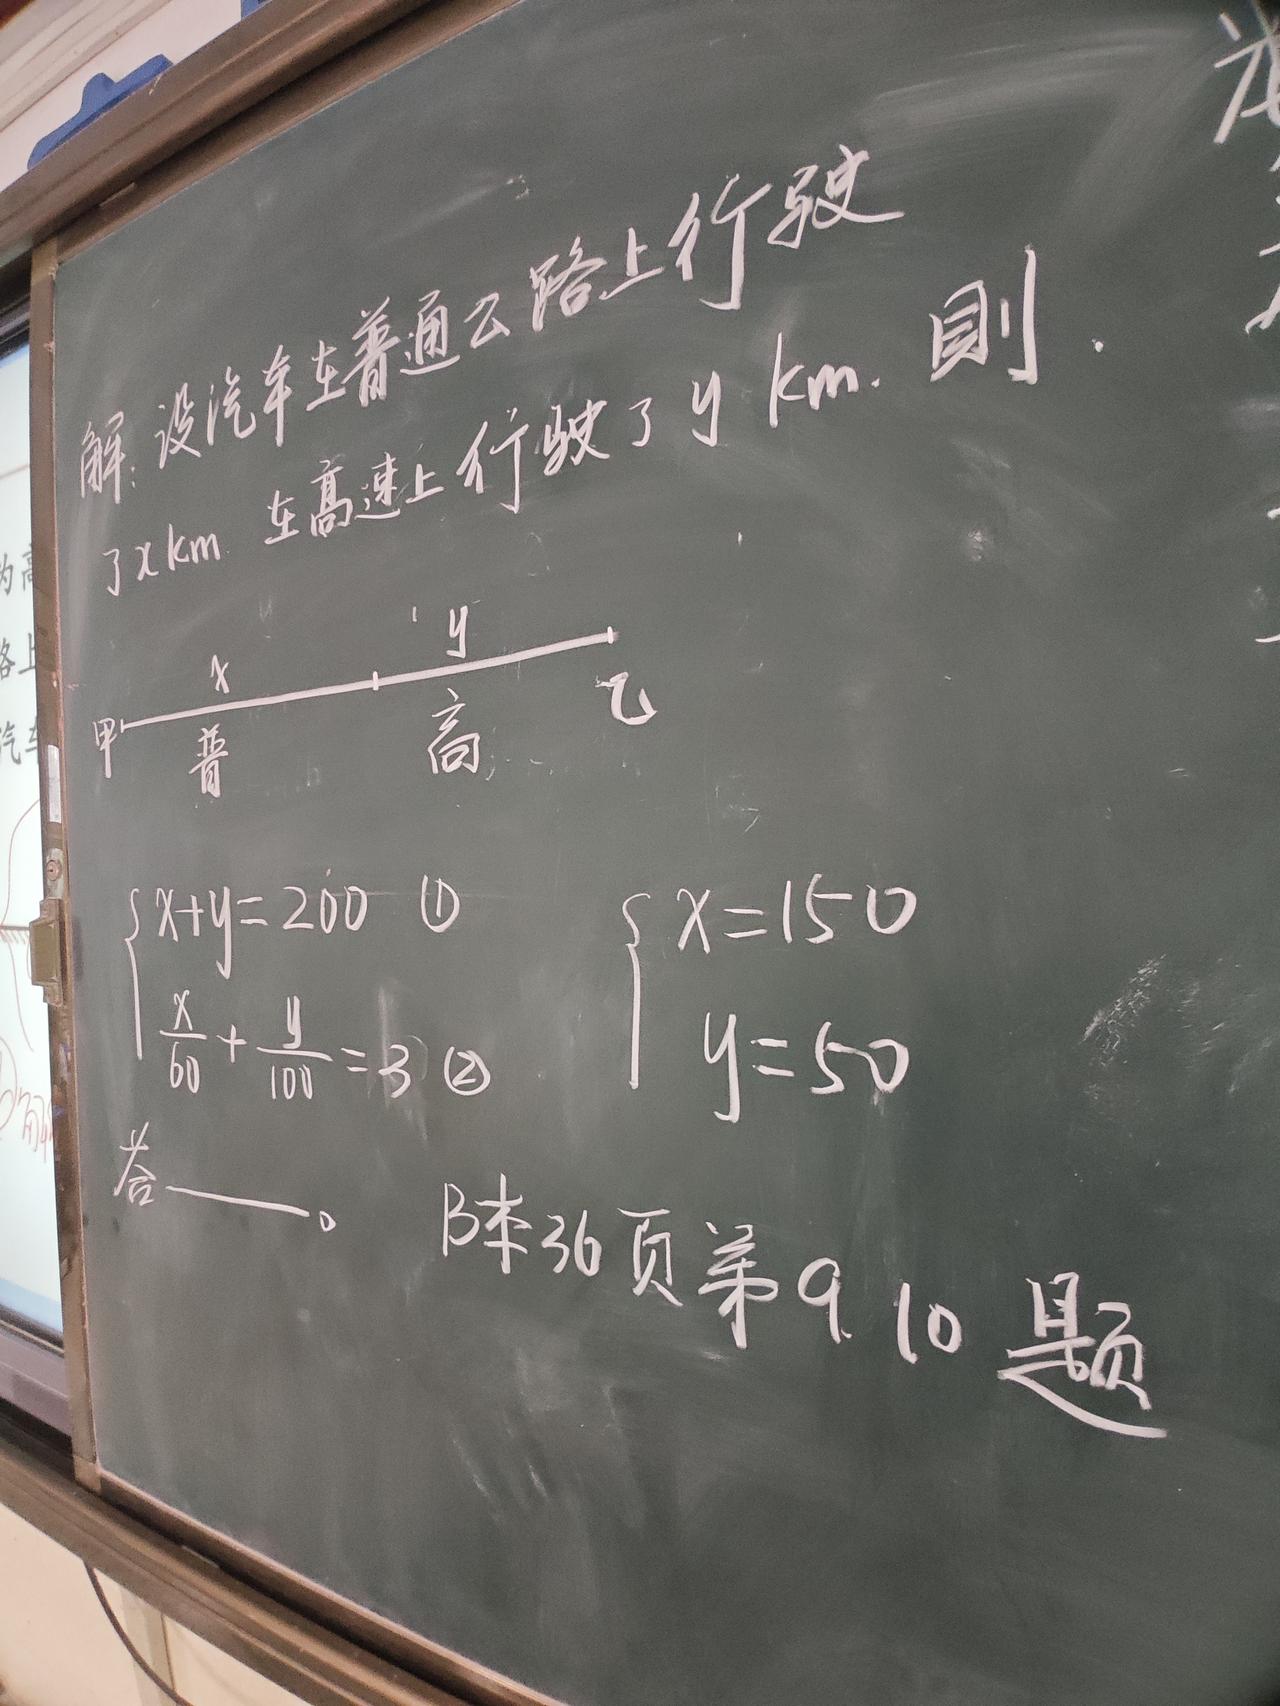 解:设汽车在普通公路上行驶
了xkm 在高速上行驶了y km. 则.
x y
甲 普 高 乙
{x+y=200 ①
x/60 + y/100 =3 ②
{x=150
y=50
答——。
B本36页第9.10题
为高
路上
汽车